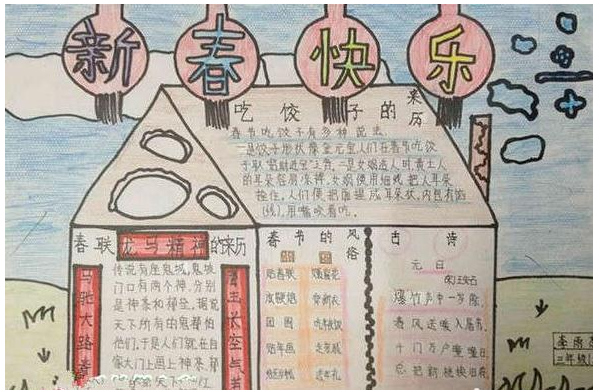 新春快乐
吃饺子的来历
春节吃饺子有多种说法
一是饺子形状像金元宝人们在春节吃饺
子取"招财进宝"之音,一是女娲造人时黄土人
的耳朵容易冻掉,女娲使用细线把人耳朵
拴住,人们便把面捏成耳朵状,内包有馅
(线),用嘴咬着吃。
春联龙马精神的来历
传说有座鬼域,鬼域
门口有两个神,分别
是神荼和郁垒,据说
天下所有的鬼都怕
他们,于是人们就在自
家大门上画上神荼,郁
大路
长空气
春节的风俗
贴春联
放鞭炮
团圆
贴年画
古诗
元日
宋王安石
爆竹声中一岁除,
春风送暖入屠苏。
千门万户曈曈日,
总把新桃换旧符
三年级